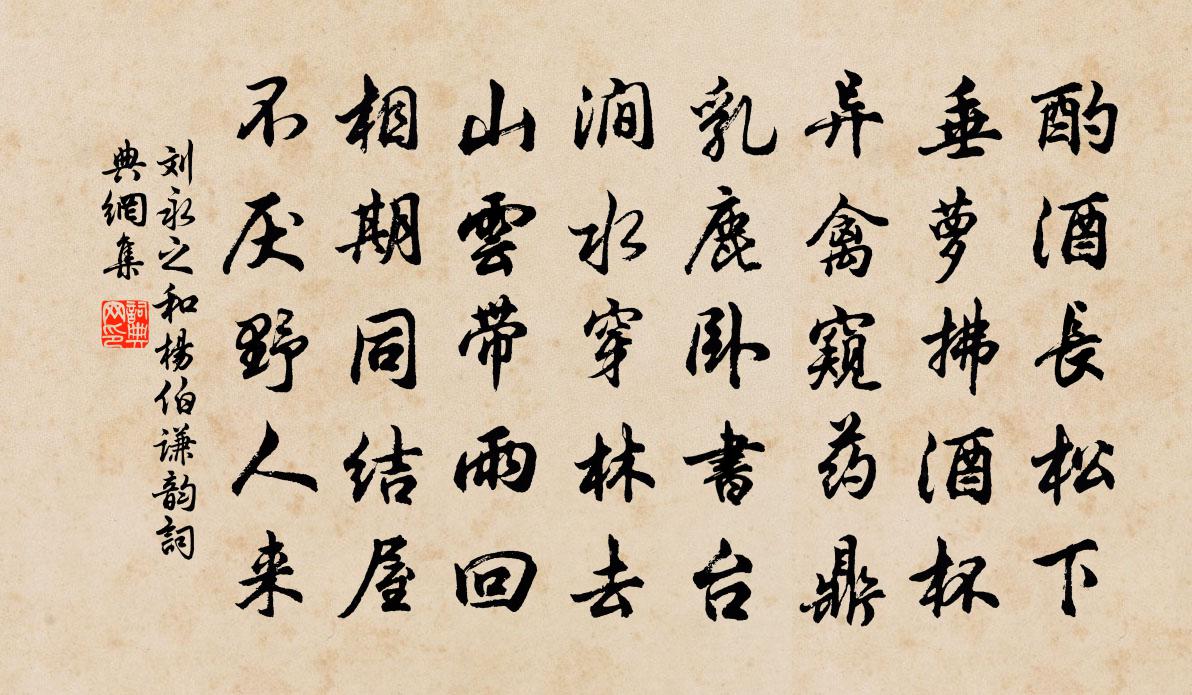 酌酒長松下
垂萝拂酒杯
异禽窺药鼎
乳鹿卧書台
澗水穿林去
山雲带雨回
相期同结屋
不厌野人来
刘永之和楊伯谦韵詞
典網集
詞典網印